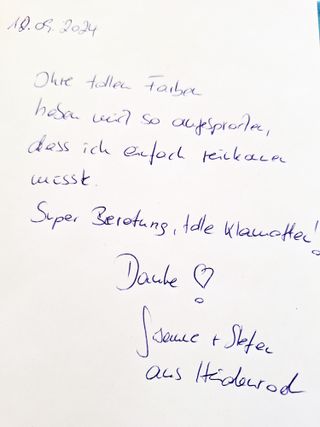 18.09.2024
Ihre tollen Farben
haben mich so angesprochen,
dass ich einfach reinkommen
musste.
Super Beratung, tolle Klamotten!
Danke ♡
+ Stefan
aus Heidenrod